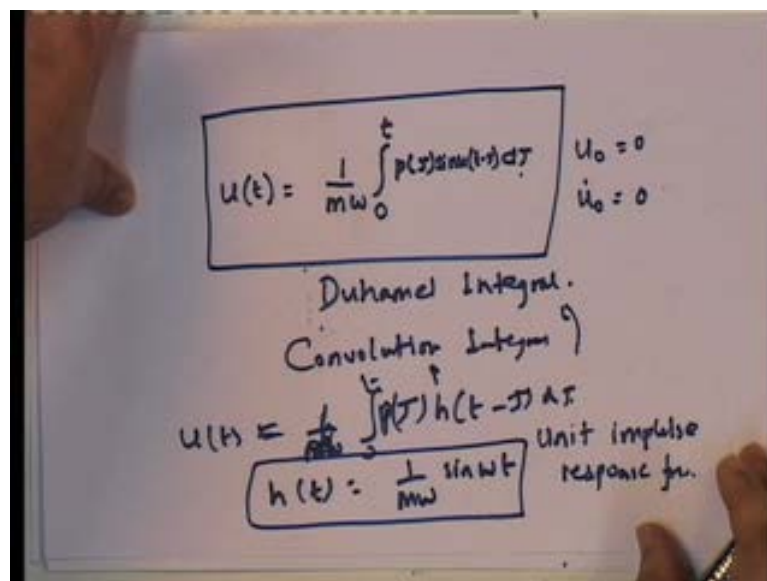 u(t) = 1/mω ∫₀ᵗ p(τ) sin ω(t-τ) dτ
u₀ = 0
u̇₀ = 0
Duhamel Integral.
Convolution Integral
u(t) = ∫₀ᵗ p(τ) h(t-τ) dτ
h(t) = 1/mω sin ωt
Unit impulse
response fn.